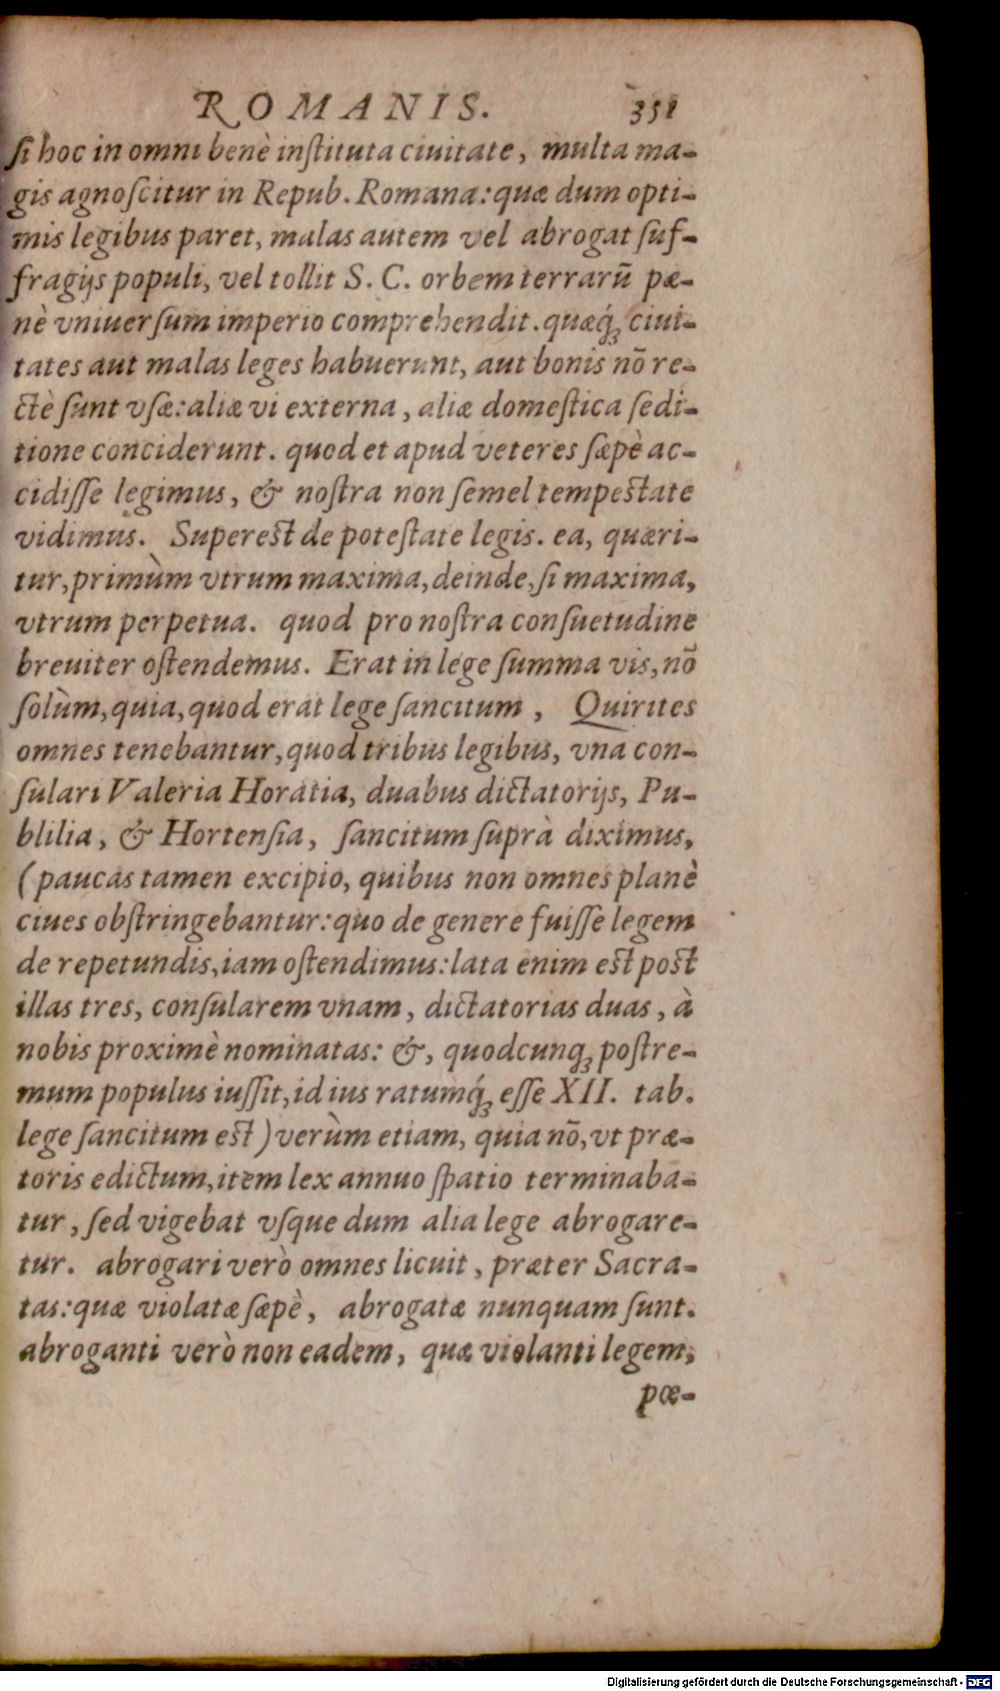 ROMANIS. 351
ſi hoc in omni benè inſtituta ciuitate, multa ma-
gis agnoſcitur in Repub. Romana: quæ dum opti-
mis legibus paret, malas autem vel abrogat ſuf-
fragijs populi, vel tollit S. C. orbem terrarū pæ-
nè vniuerſum imperio comprehendit. quæq́ꝫ ciui-
tates aut malas leges habuerunt, aut bonis nō re-
ctè ſunt vſæ: aliæ vi externa, aliæ domeſtica ſedi-
tione conciderunt. quod et apud veteres ſæpè ac-
cidiſſe legimus, & noſtra non ſemel tempeſtate
vidimus. Supereſt de poteſtate legis. ea, quæri-
tur, primùm vtrum maxima, deinde, ſi maxima,
vtrum perpetua. quod pro noſtra conſuetudine
breuiter oſtendemus. Erat in lege ſumma vis, nō
ſolùm, quia, quod erat lege ſancitum, Quirites
omnes tenebantur, quod tribus legibus, vna con-
ſulari Valeria Horatia, duabus dictatorijs, Pu-
blilia, & Hortenſia, ſancitum ſuprà diximus,
(paucas tamen excipio, quibus non omnes planè
ciues obſtringebantur: quo de genere fuiſſe legem
de repetundis, iam oſtendimus: lata enim eſt poſt
illas tres, conſularem vnam, dictatorias duas, à
nobis proximè nominatas: &, quodcunqꝫ poſtre-
mum populus iuſſit, id ius ratumq́ꝫ eſſe XII. tab.
lege ſancitum eſt) verùm etiam, quia nō, vt præ-
toris edictum, item lex annuo ſpatio terminaba-
tur, ſed vigebat vſque dum alia lege abrogare-
tur. abrogari verò omnes licuit, præter Sacra-
tas: quæ violatæ ſæpè, abrogatæ nunquam ſunt.
abroganti verò non eadem, quæ violanti legem,
pœ-
Digitalisierung gefördert durch die Deutsche Forschungsgemeinschaft - DFG